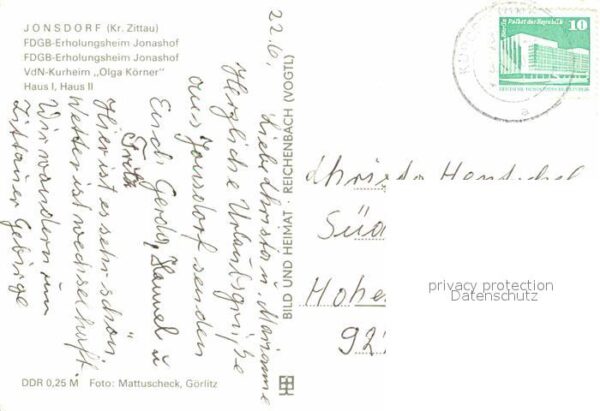 JONSDORF (Kr. Zittau)
FDGB-Erholungsheim Jonashof
FDGB-Erholungsheim Jonashof
VdN-Kurheim „Olga Körner"
Haus I, Haus II
22.6.
Liebe Christa u. Marianne
Herzliche Urlaubsgrüße
aus Jonsdorf senden
Euch Gerda, Hannel u
Fritz
Hier ist es sehr schön
Wetter ist wechselhaft
Wir wandern im
Zittauer Gebirge
BILD UND HEIMAT · REICHENBACH (VOGTL)
Berlin Palast der Republik
10
DEUTSCHE DEMOKRATISCHE REPUBLIK
a
Christa
Süd
Hohe
92
privacy protection
Datenschutz
DDR 0,25 M Foto: Mattuscheck, Görlitz